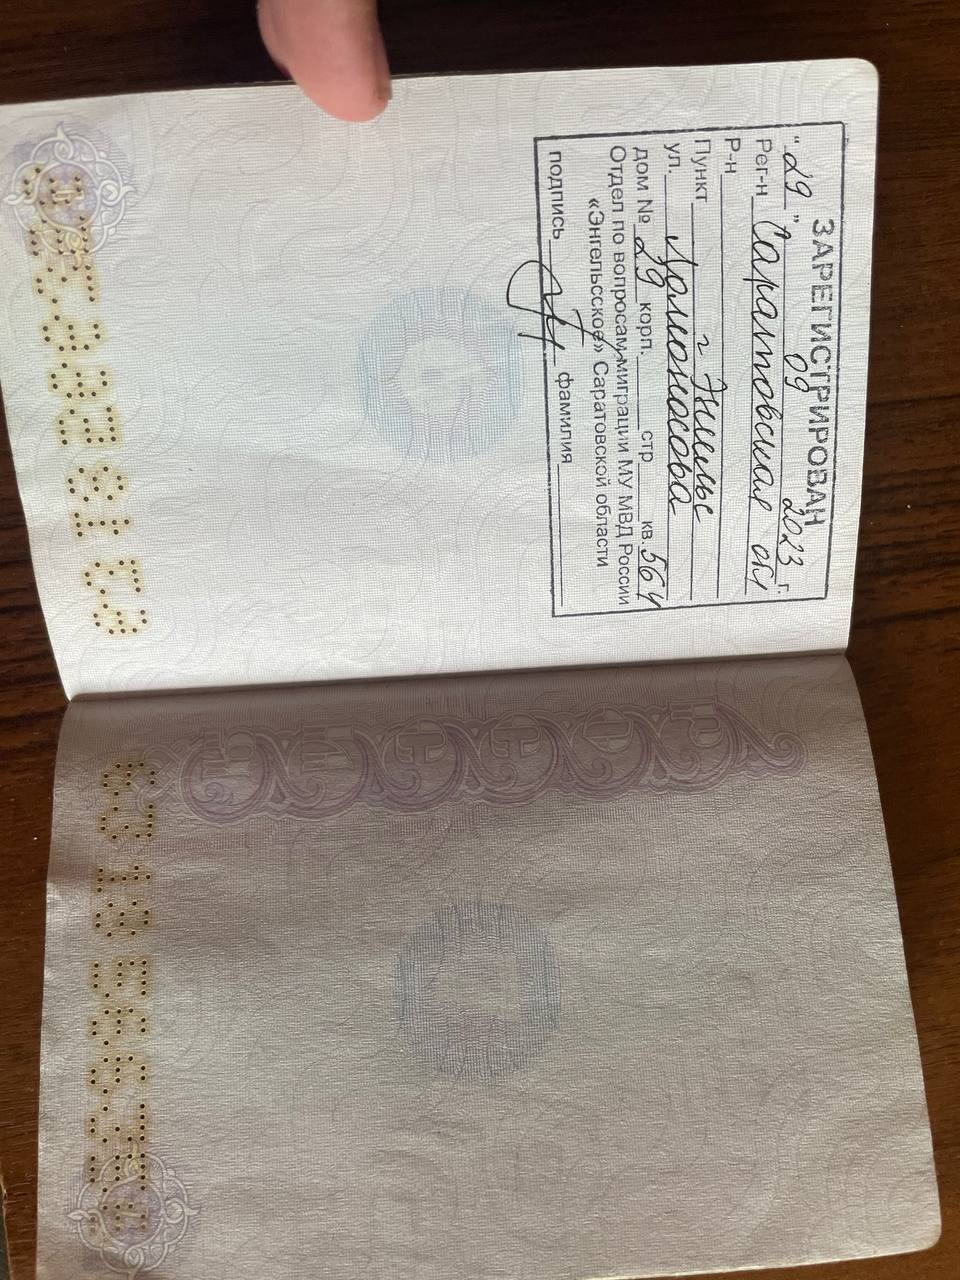 ЗАРЕГИСТРИРОВАН
"29" 09 2023 г.
Рег-н Саратовская обл
Р-н
Пункт г Энгельс
ул. Ломоносова
дом № 29 корп. стр кв. 564
Отдел по вопросам миграции МУ МВД России
«Энгельсское» Саратовской области
подпись фамилия